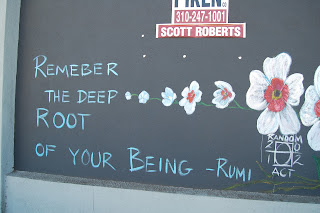 PIKEN.CO
310-247-1001
SCOTT ROBERTS
REMEBER
THE DEEP
ROOT
OF YOUR BEING -RUMI
RANDOM
ACT